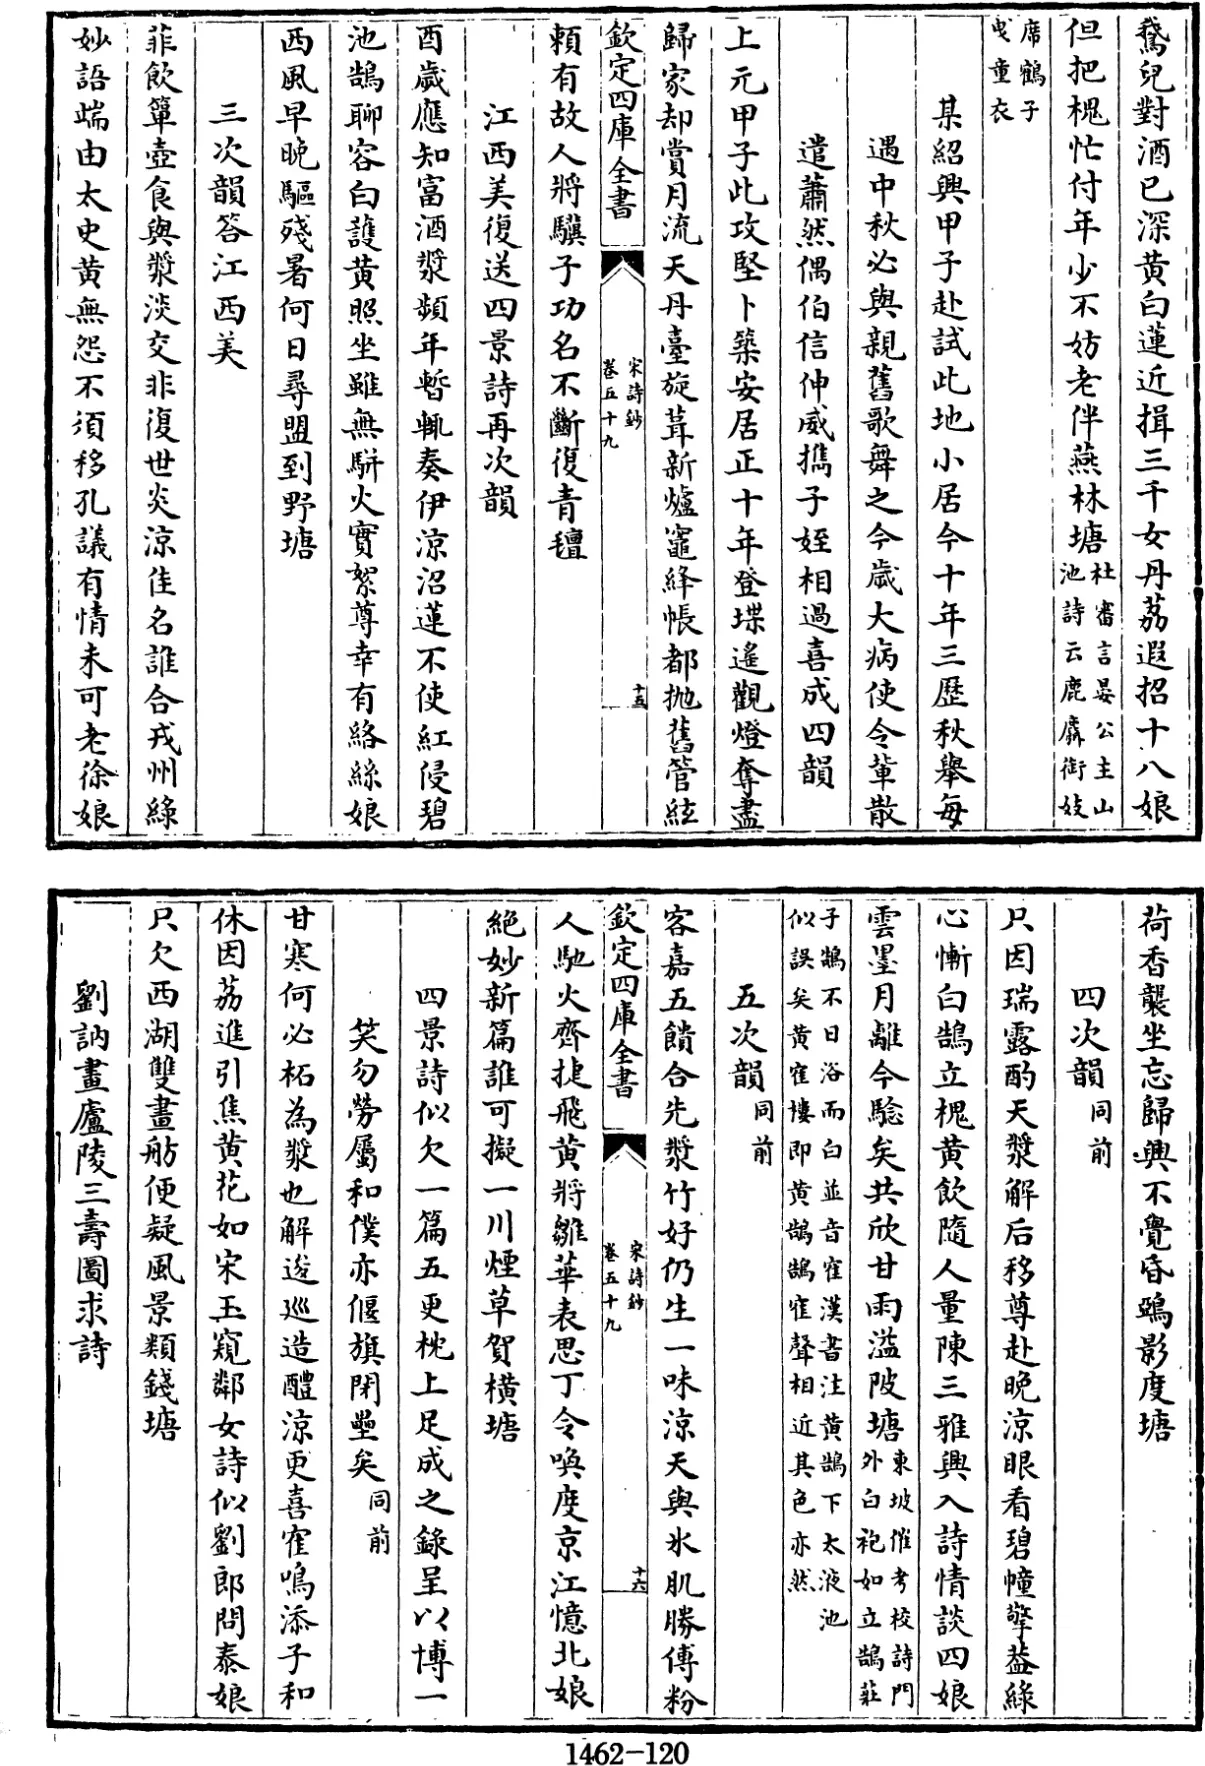 鵞兒對酒已深黄白蓮近揖三千女丹荔遐招十八娘
但把槐忙付年少不妨老伴燕林塘杜審言晏公主山池詩云鹿麛衔妓
席鶴子曳童衣
某紹興甲子赴試此地小居今十年三歷秋舉每
遇中秋必與親舊歌舞之今歲大病使令輩散
遣蕭然偶伯信伸威携子姪相過喜成四韻
上元甲子此攻堅卜築安居正十年登堞遙觀燈奪晝
歸家却賞月流天丹臺旋葺新爐竈絳帳都抛舊管絃
欽定四庫全書
宋詩鈔
卷五十九
十五
頼有故人將驥子功名不斷復青氊
江西美復送四景詩再次韻
酉歲應知富酒漿頻年暫輟奏伊涼沼蓮不使紅侵碧
池鵠聊容白䕶黄照坐雖無駢火實絮尊幸有絡絲娘
西風早晩驅殘暑何日尋盟到野塘
三次韻答江西美
菲飲簞壺食與漿淡交非復世炎涼佳名誰合戎州綠
妙語端由太史黄無怨不須移孔議有情未可老徐娘
荷香襲坐忘歸興不覺昏鵶影度塘
四次韻同前
只因瑞露酌天漿解后移尊赴晩涼眼看碧幢擎葢綠
心慚白鵠立槐黄飲隨人量陳三雅興入詩情談四娘
雲墨月離今騐矣共欣甘雨溢陂塘東坡催考校詩門外白袍如立鵠莊
子鵠不日浴而白並音寉漢書注黄鵠下太液池似誤矣黄寉樓即黄鵠鵠寉聲相近其色亦然
五次韻同前
客嘉五饋合先漿竹好仍生一味涼天與氷肌勝傅粉
欽定四庫全書
宋詩鈔
卷五十九
十六
人馳火齊捷飛黄將雛華表思丁令喚度京江憶北娘
絶妙新篇誰可擬一川煙草賀横塘
四景詩似欠一篇五更枕上足成之錄呈以博一
笑勿勞屬和僕亦偃旗閉壘矣同前
甘寒何必柘為漿也解逡巡造醴涼更喜寉鳴添子和
休因荔進引焦黄花如宋玉窺鄰女詩似劉郎問泰娘
只欠西湖雙畫舫便疑風景類錢塘
劉訥畫廬陵三壽圖求詩
1462-120